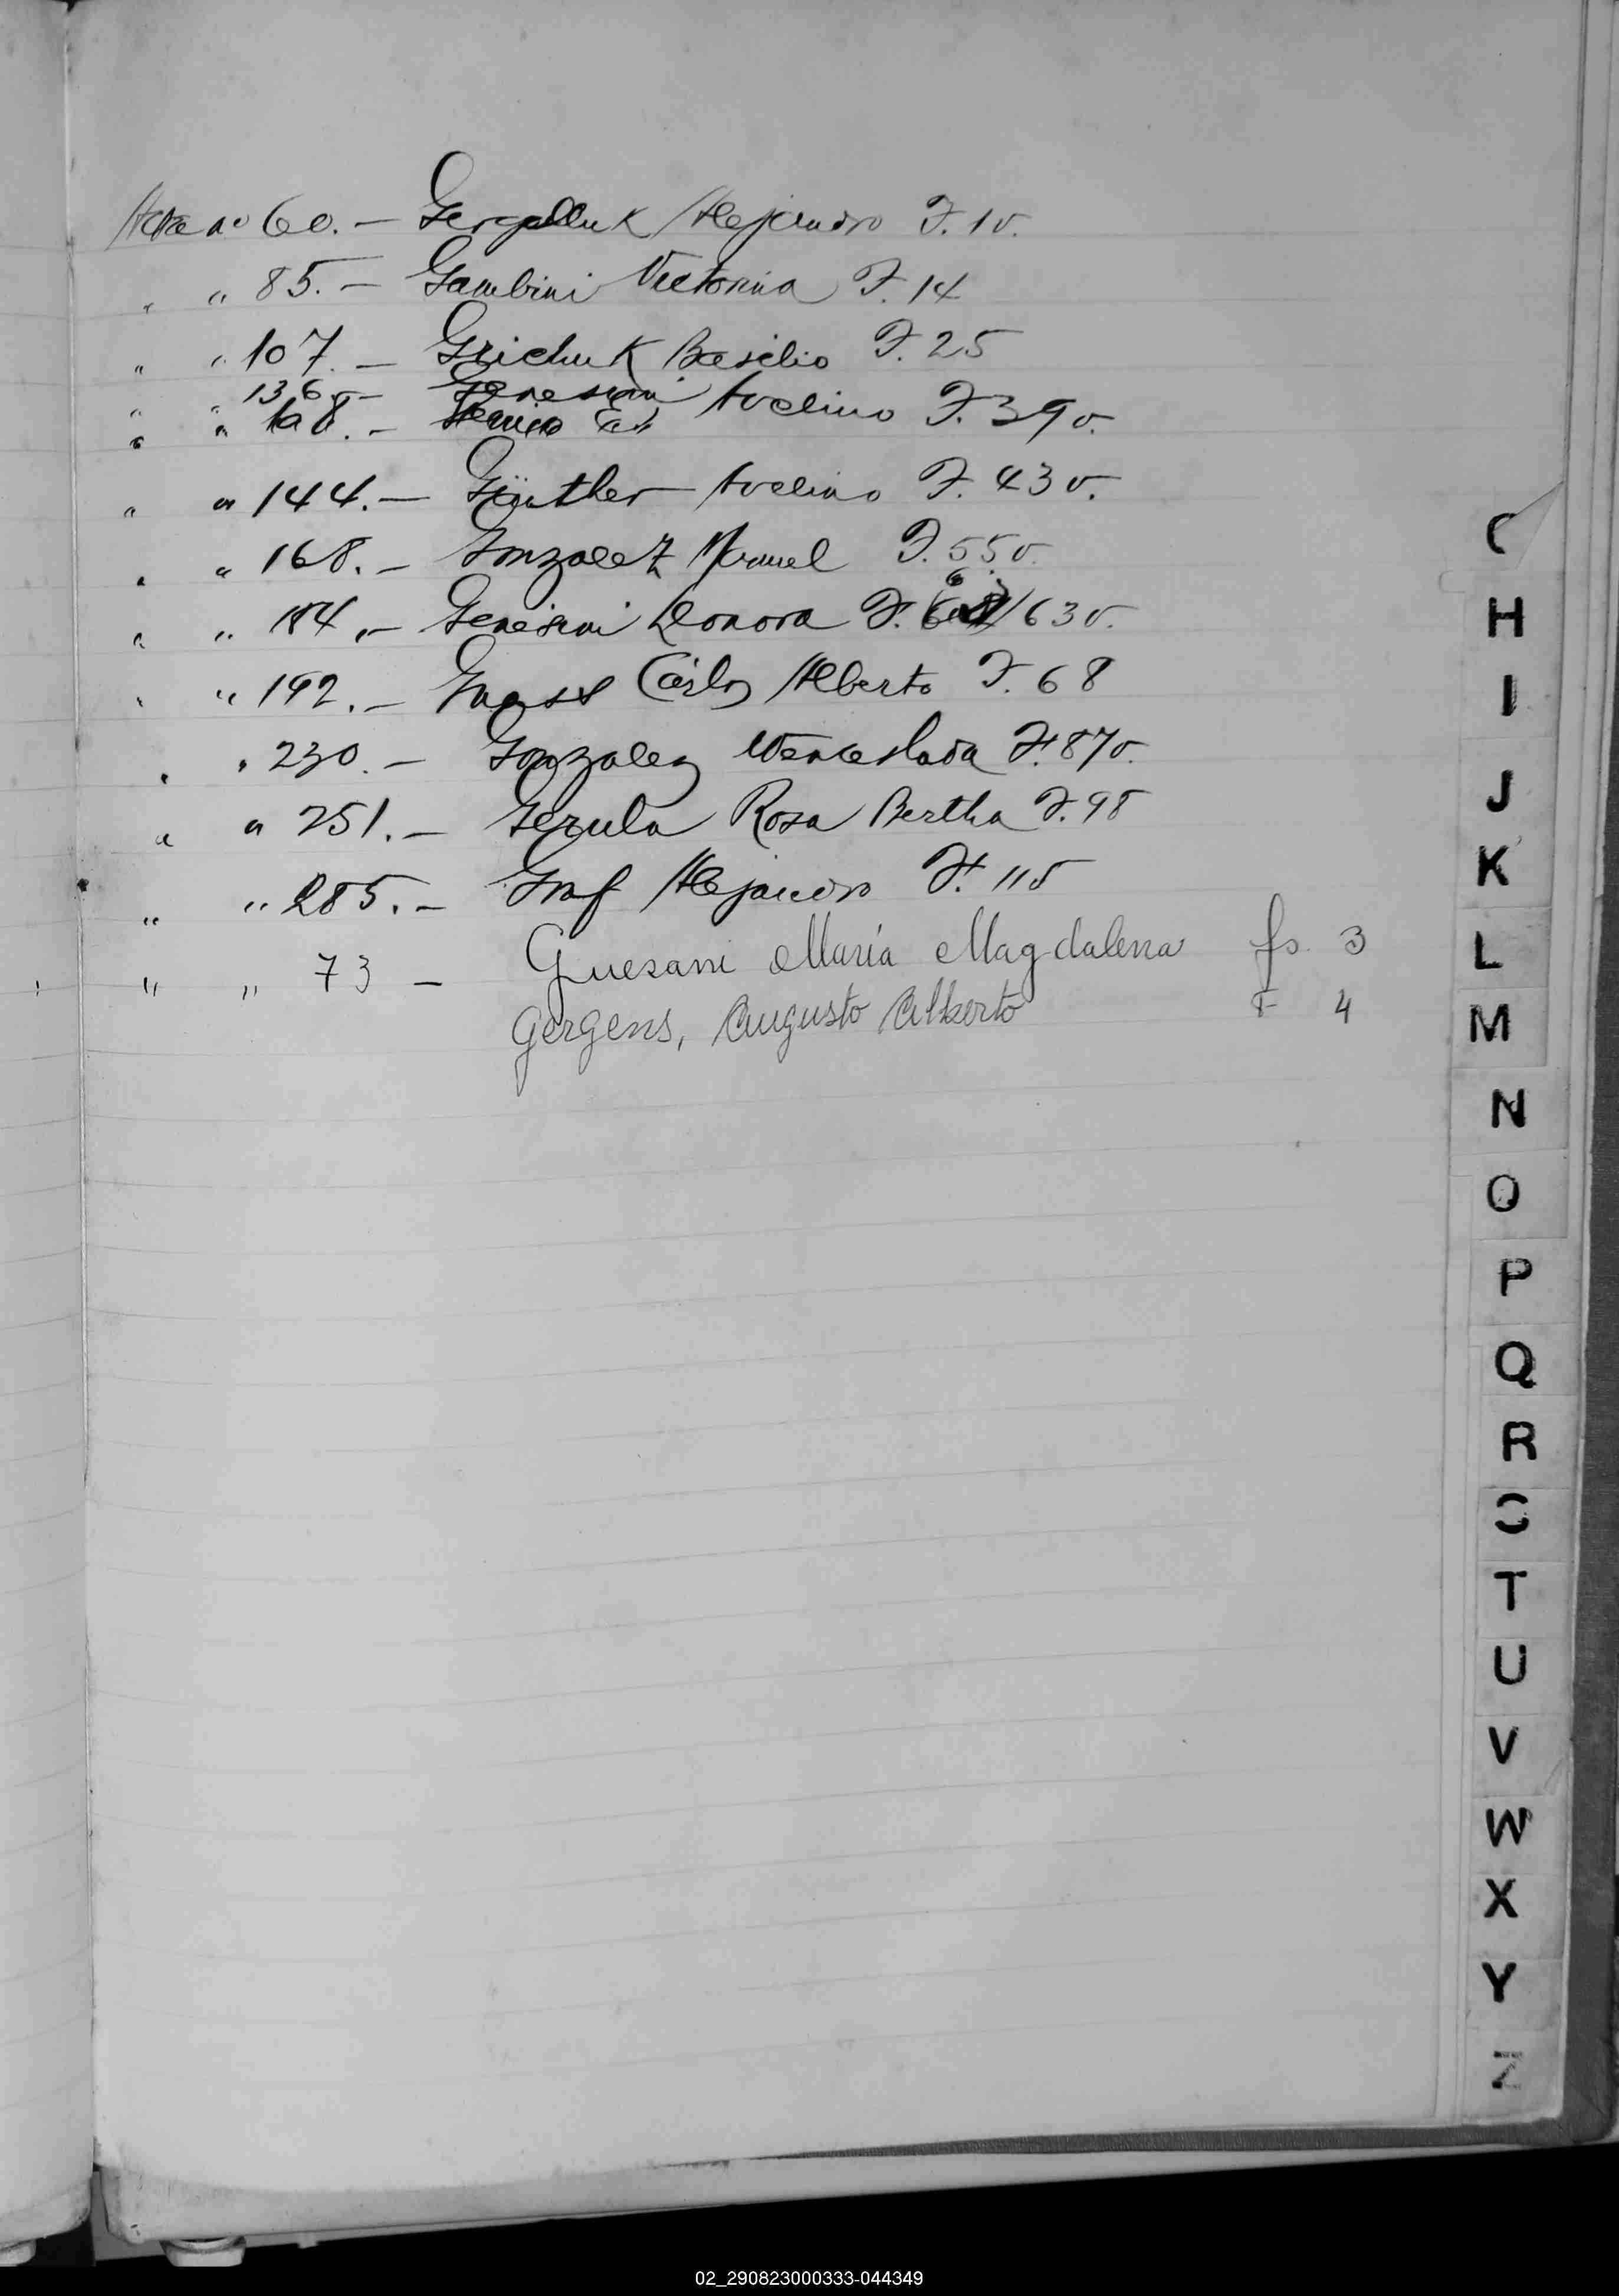 Acta nº 60. — Alejandro F. 1v.
" " 85. — Gambini Victorina F. 14
" " 107. — Grichuk Basilio F. 25
" " 136 — Genesini Avelino F. 39v.
" " 168. —
" " 144. — Günther Avelino F. 43v.
" " 168. — Gonzalez Manuel F. 55v.
" " 184. — Genesini Leonora F. 63v.
" " 192. — Carlos Alberto F. 68
" " 230. — Gonzalez Wenceslada F. 87v.
" " 251. — Gezula Rosa Bertha F. 98
" " 285. — Graf Alejandro F. 115
" " 73 — María Magdalena fs. 3
Gergens, Augusto Alberto F 4
H
I
J
K
L
M
N
O
P
Q
R
T
U
V
W
X
Y
Z
02_290823000333-044349